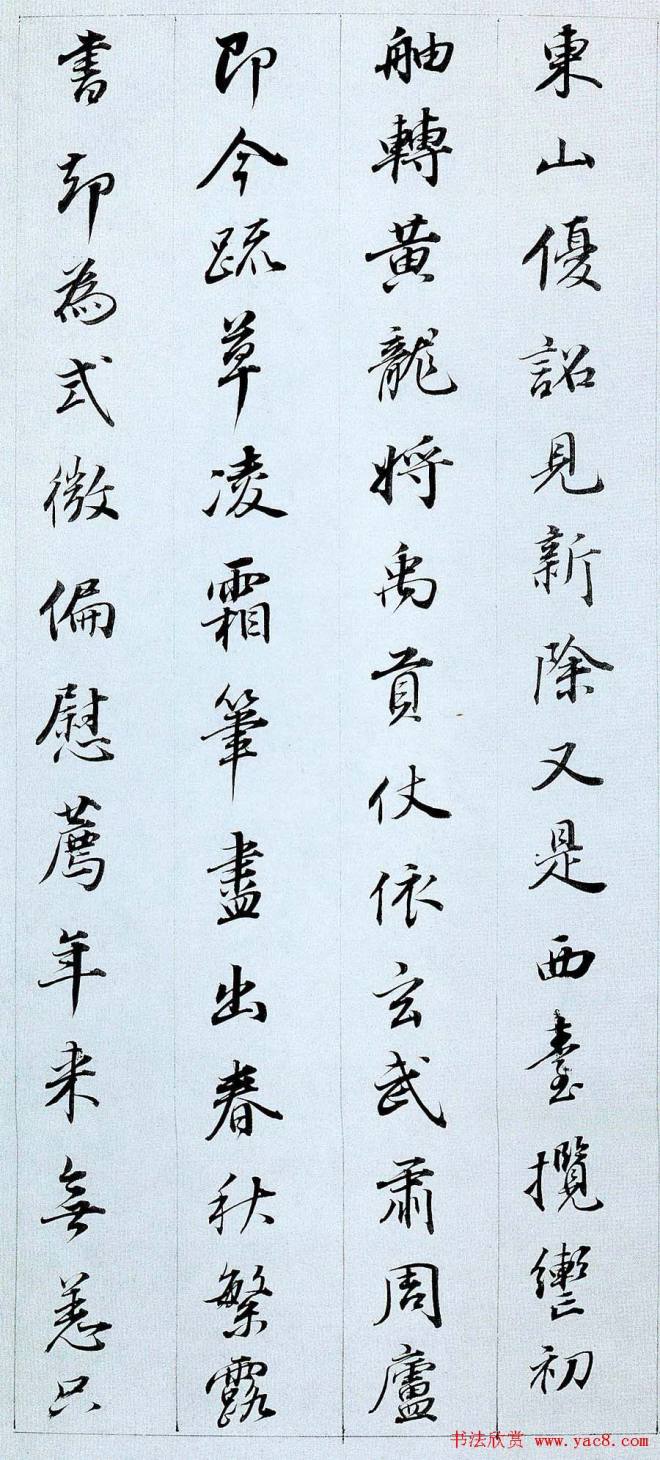 東山優詔見新除又是西臺攬轡初
舳轉黃龍將禹貢仗依玄武肅周廬
即今疏草凌霜筆盡出春秋繁露
書却為式微偏慰薦年来無恙只
书法欣赏 www.yac8.com